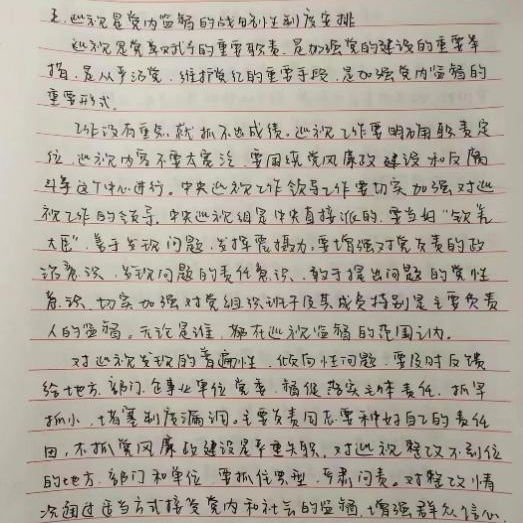 五、巡视是党内监督的战略性制度安排
巡视是党章赋予的重要职责,是加强党的建设的重要举
措,是从严治党、维护党纪的重要手段,是加强党内监督的
重要形式。
工作没有重点,就抓不出成绩。巡视工作要明确职责定
位,巡视内容不要太宽泛,要围绕党风廉政建设和反腐
斗争这个中心进行。中央巡视工作领导工作要切实加强对巡
视工作的领导。中央巡视组是中央直接派的,要当好“钦差
大臣”,善于发现问题,发挥震慑力,要增强对党负责的政
治意识、发现问题的责任意识、敢于提出问题的党性
意识,切实加强对党组织领导班子及其成员特别是主要负责
人的监督。无论是谁,都在巡视监督的范围之内。
对巡视发现的普遍性、倾向性问题,要及时反馈
给地方、部门、企事业单位党委,督促落实主体责任,抓早
抓小,堵塞制度漏洞。主要负责同志要种好自己的责任
田,不抓党风廉政建设是严重失职。对巡视整改不到位
的地方、部门和单位,要抓住典型,严肃问责。对整改情
况通过适当方式接受党内和社会的监督,增强群众信心。